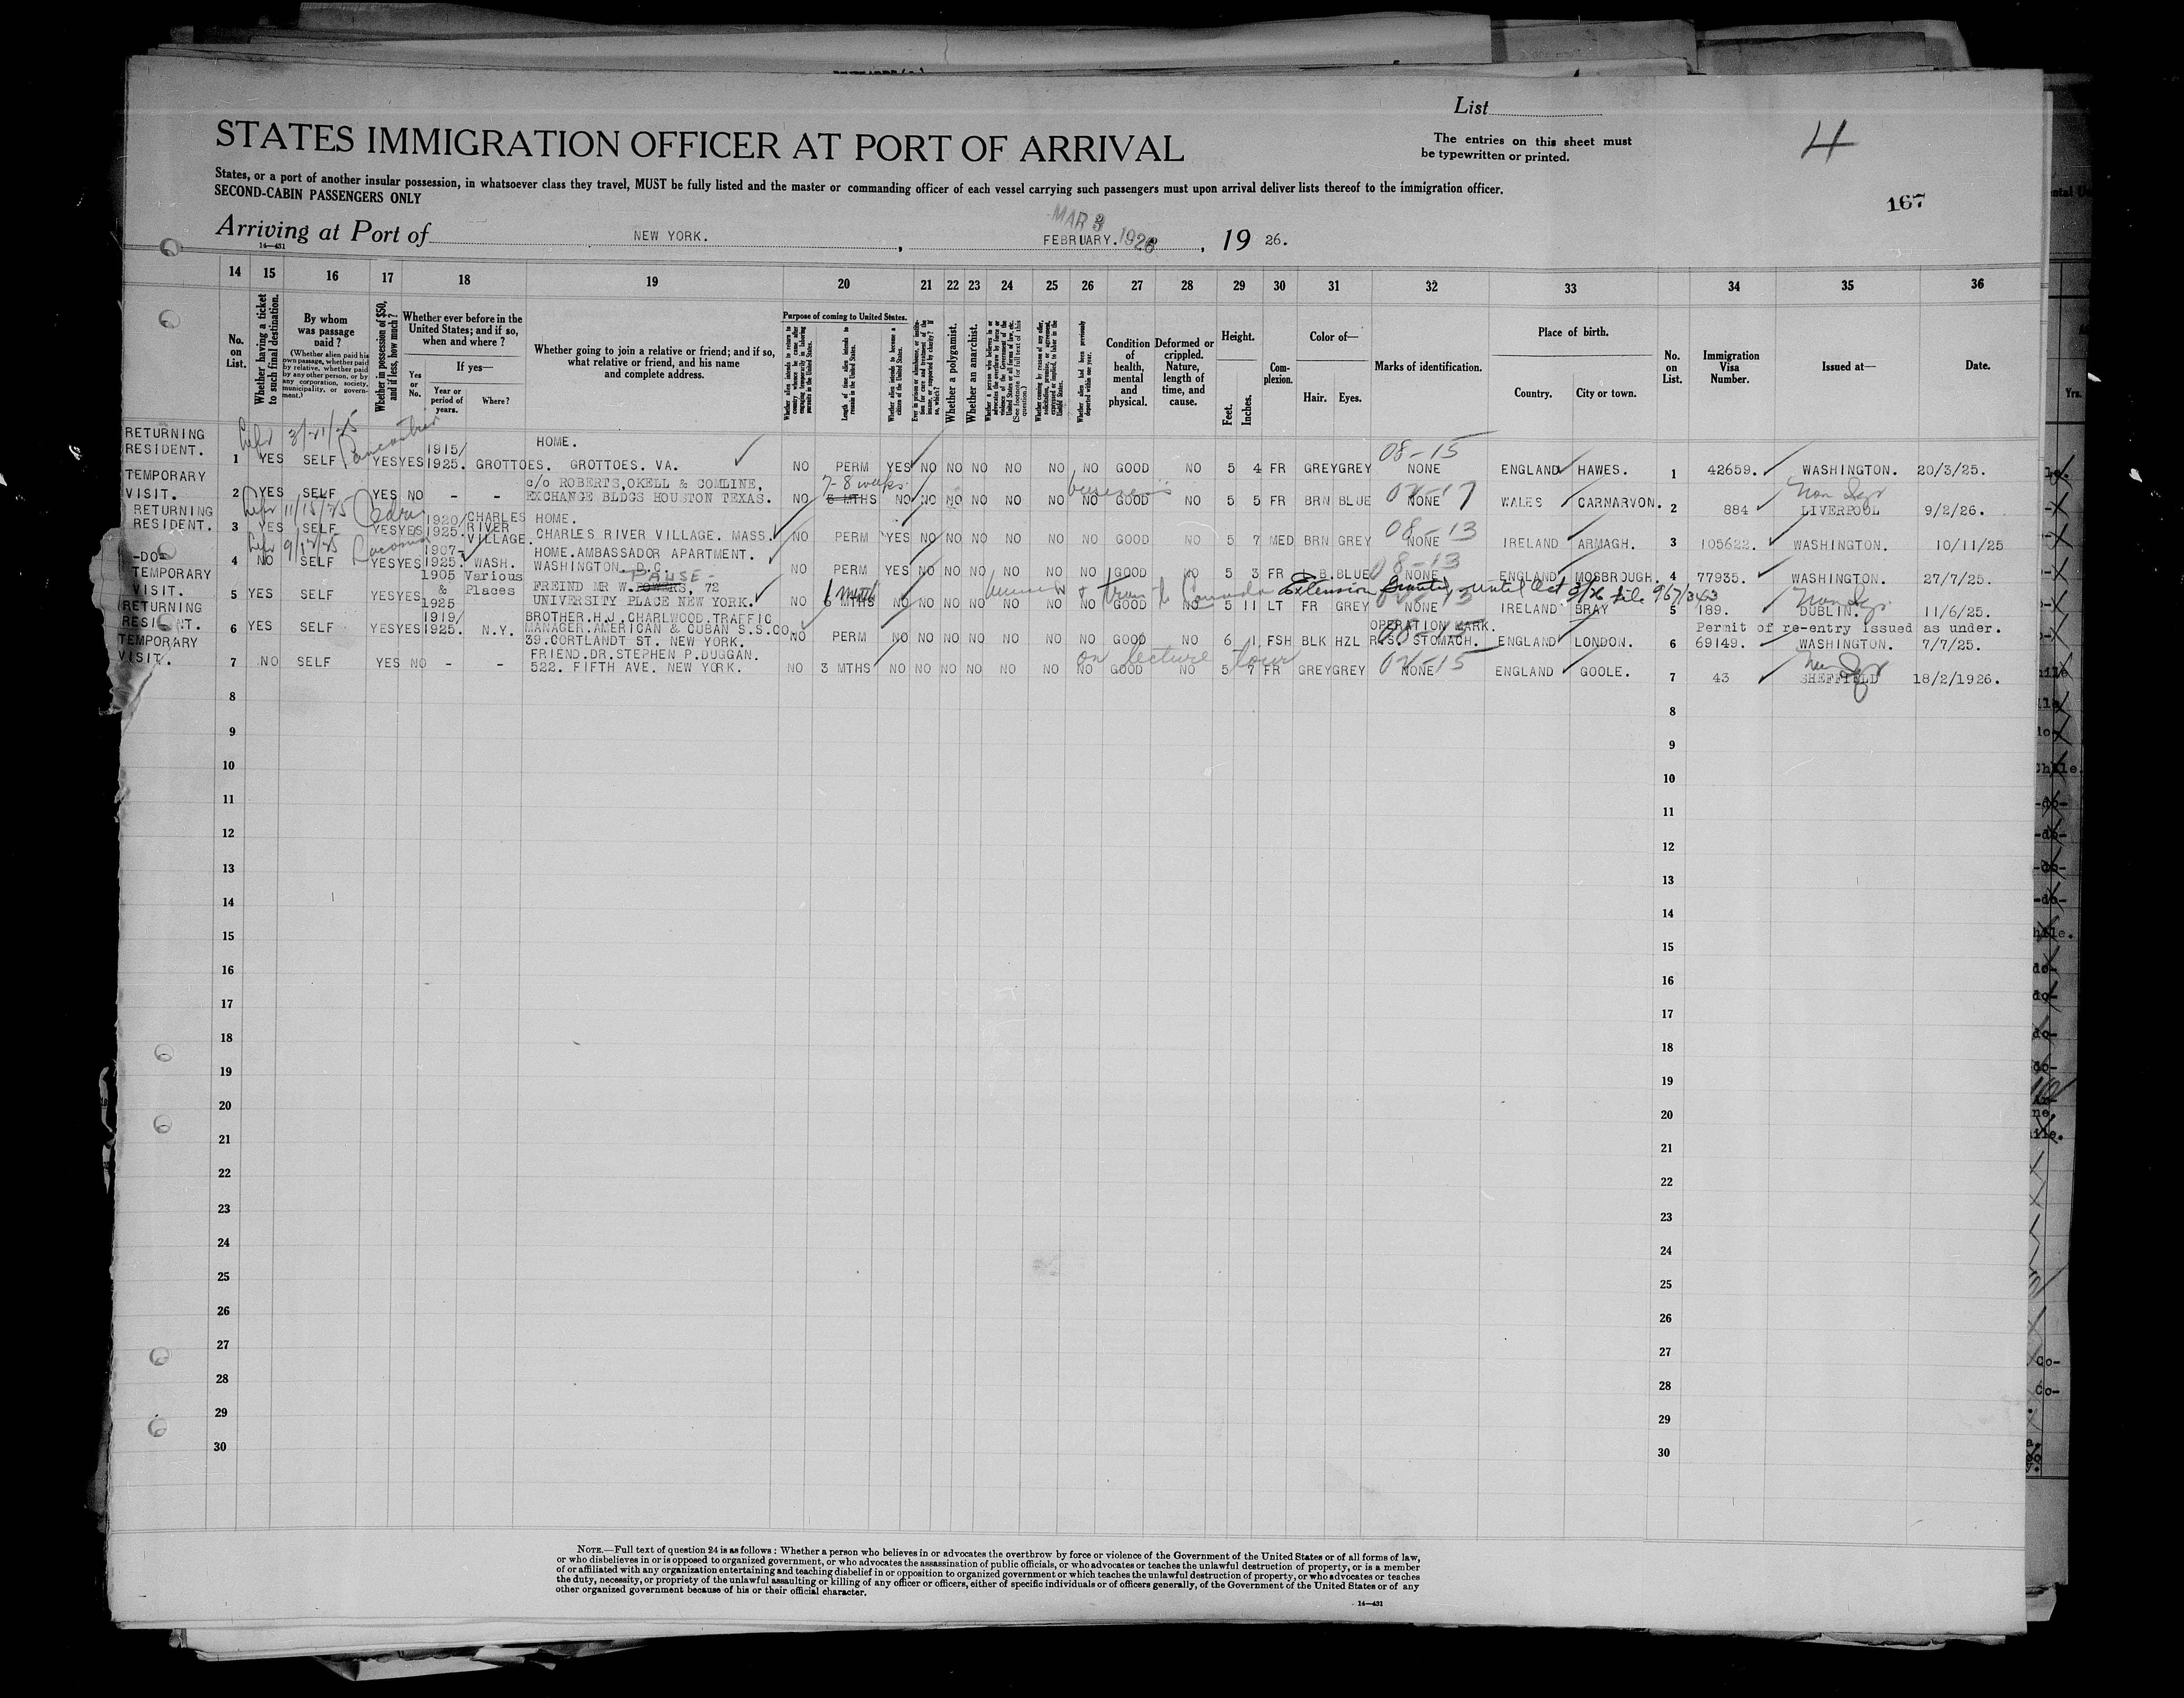 List
The entries on this sheet must
be typewritten or printed.
4
STATES IMMIGRATION OFFICER AT PORT OF ARRIVAL
States, or a port of another insular possession, in whatsoever class they travel, MUST be fully listed and the master or commanding officer of each vessel carrying such passengers must upon arrival deliver lists thereof to the immigration officer.
SECOND-CABIN PASSENGERS ONLY
167
MAR 3 1926
Arriving at Port of NEW YORK. , FEBRUARY. , 19 26.
14—431
14 15 16 17 18 19 20 21 22 23 24 25 26 27 28 29 30 31 32 33 34 35 36
No. on List.
Whether having a ticket to such final destination.
By whom was passage paid?
(Whether alien paid his own passage, whether paid by relative, whether paid by any other person, or by any corporation, society, municipality, or government.)
Whether in possession of $50, and if less, how much?
Whether ever before in the United States; and if so, when and where?
Yes or No.
If yes—
Year or period of years.
Where?
Whether going to join a relative or friend; and if so, what relative or friend, and his name and complete address.
Purpose of coming to United States.
Length of time alien intends to remain in the United States.
Whether alien intends to become a citizen of the United States.
Whether a polygamist.
Whether an anarchist.
Condition of health, mental and physical.
Deformed or crippled. Nature, length of time, and cause.
Height.
Feet. Inches.
Complexion.
Color of—
Hair. Eyes.
Marks of identification.
Place of birth.
Country. City or town.
No. on List.
Immigration Visa Number.
Issued at—
Date.
3/21/25
08-15
RETURNING RESIDENT. 1 YES SELF YES YES 1915/ 1925. GROTTOES. HOME. GROTTOES. VA. NO PERM YES NO NO NO NO NO NO GOOD NO 5 4 FR GREY GREY NONE ENGLAND HAWES. 1 42659. WASHINGTON. 20/3/25.
7-8 weeks business 02-17
TEMPORARY VISIT. 2 YES SELF YES NO - - c/o ROBERTS,OKELL & COMLINE, EXCHANGE BLDGS HOUSTON TEXAS. NO 6 MTHS NO NO NO NO NO NO NO GOOD NO 5 5 FR BRN BLUE NONE WALES CARNARVON. 2 884 LIVERPOOL 9/2/26.
11/15/25 08-13
RETURNING RESIDENT. 3 YES SELF YES YES 1920/ 1925. CHARLES RIVER VILLAGE. HOME. CHARLES RIVER VILLAGE. MASS. NO PERM YES NO NO NO NO NO NO GOOD NO 5 7 MED BRN GREY NONE IRELAND ARMAGH. 3 105622. WASHINGTON. 10/11/25
9/12/25 08-13
-DO- 4 NO SELF YES YES 1907- 1925. WASH. HOME.AMBASSADOR APARTMENT. WASHINGTON. D.C. NO PERM YES NO NO NO NO NO NO GOOD NO 5 3 FR BLUE NONE ENGLAND MOSBROUGH. 4 77935. WASHINGTON. 27/7/25.
PAUSE- 1 mth Extension granted until Oct 3/26 file 967/3463
TEMPORARY VISIT. 5 YES SELF YES YES 1905 & 1925 Various Places FREIND MR W.POWERS, 72 UNIVERSITY PLACE NEW YORK. NO 6 MTHS NO NO NO NO NO NO NO GOOD NO 5 11 LT FR GREY NONE IRELAND BRAY 5 189. DUBLIN. 11/6/25.
Permit of re-entry issued as under.
RETURNING RESIDENT. 6 YES SELF YES YES 1919/ 1925. N.Y. BROTHER.H.J.CHARLWOOD.TRAFFIC MANAGER.AMERICAN & CUBAN S.S.CO. 39.CORTLANDT ST. NEW YORK. NO PERM NO NO NO NO NO NO NO GOOD NO 6 1 FSH BLK HZL OPERATION MARK. R.S. STOMACH. ENGLAND LONDON. 6 69149. WASHINGTON. 7/7/25.
on lecture tour 02-15
TEMPORARY VISIT. 7 NO SELF YES NO - - FRIEND.DR.STEPHEN P.DUGGAN. 522. FIFTH AVE. NEW YORK. NO 3 MTHS NO NO NO NO NO NO NO GOOD NO 5 7 FR GREY GREY NONE ENGLAND GOOLE. 7 43 SHEFFIELD 18/2/1926.
8 8
9 9
10 10
11 11
12 12
13 13
14 14
15 15
16 16
17 17
18 18
19 19
20 20
21 21
22 22
23 23
24 24
25 25
26 26
27 27
28 28
29 29
30 30
NOTE.—Full text of question 24 is as follows: Whether a person who believes in or advocates the overthrow by force or violence of the Government of the United States or of all forms of law,
or who disbelieves in or is opposed to organized government, or who advocates the assassination of public officials, or who advocates or teaches the unlawful destruction of property, or is a member
of or affiliated with any organization entertaining and teaching disbelief in or opposition to organized government or which teaches the unlawful destruction of property, or who advocates or teaches
the duty, necessity, or propriety of the unlawful assaulting or killing of any officer or officers, either of specific individuals or of officers generally, of the Government of the United States or of any
other organized government because of his or their official character.
14—431